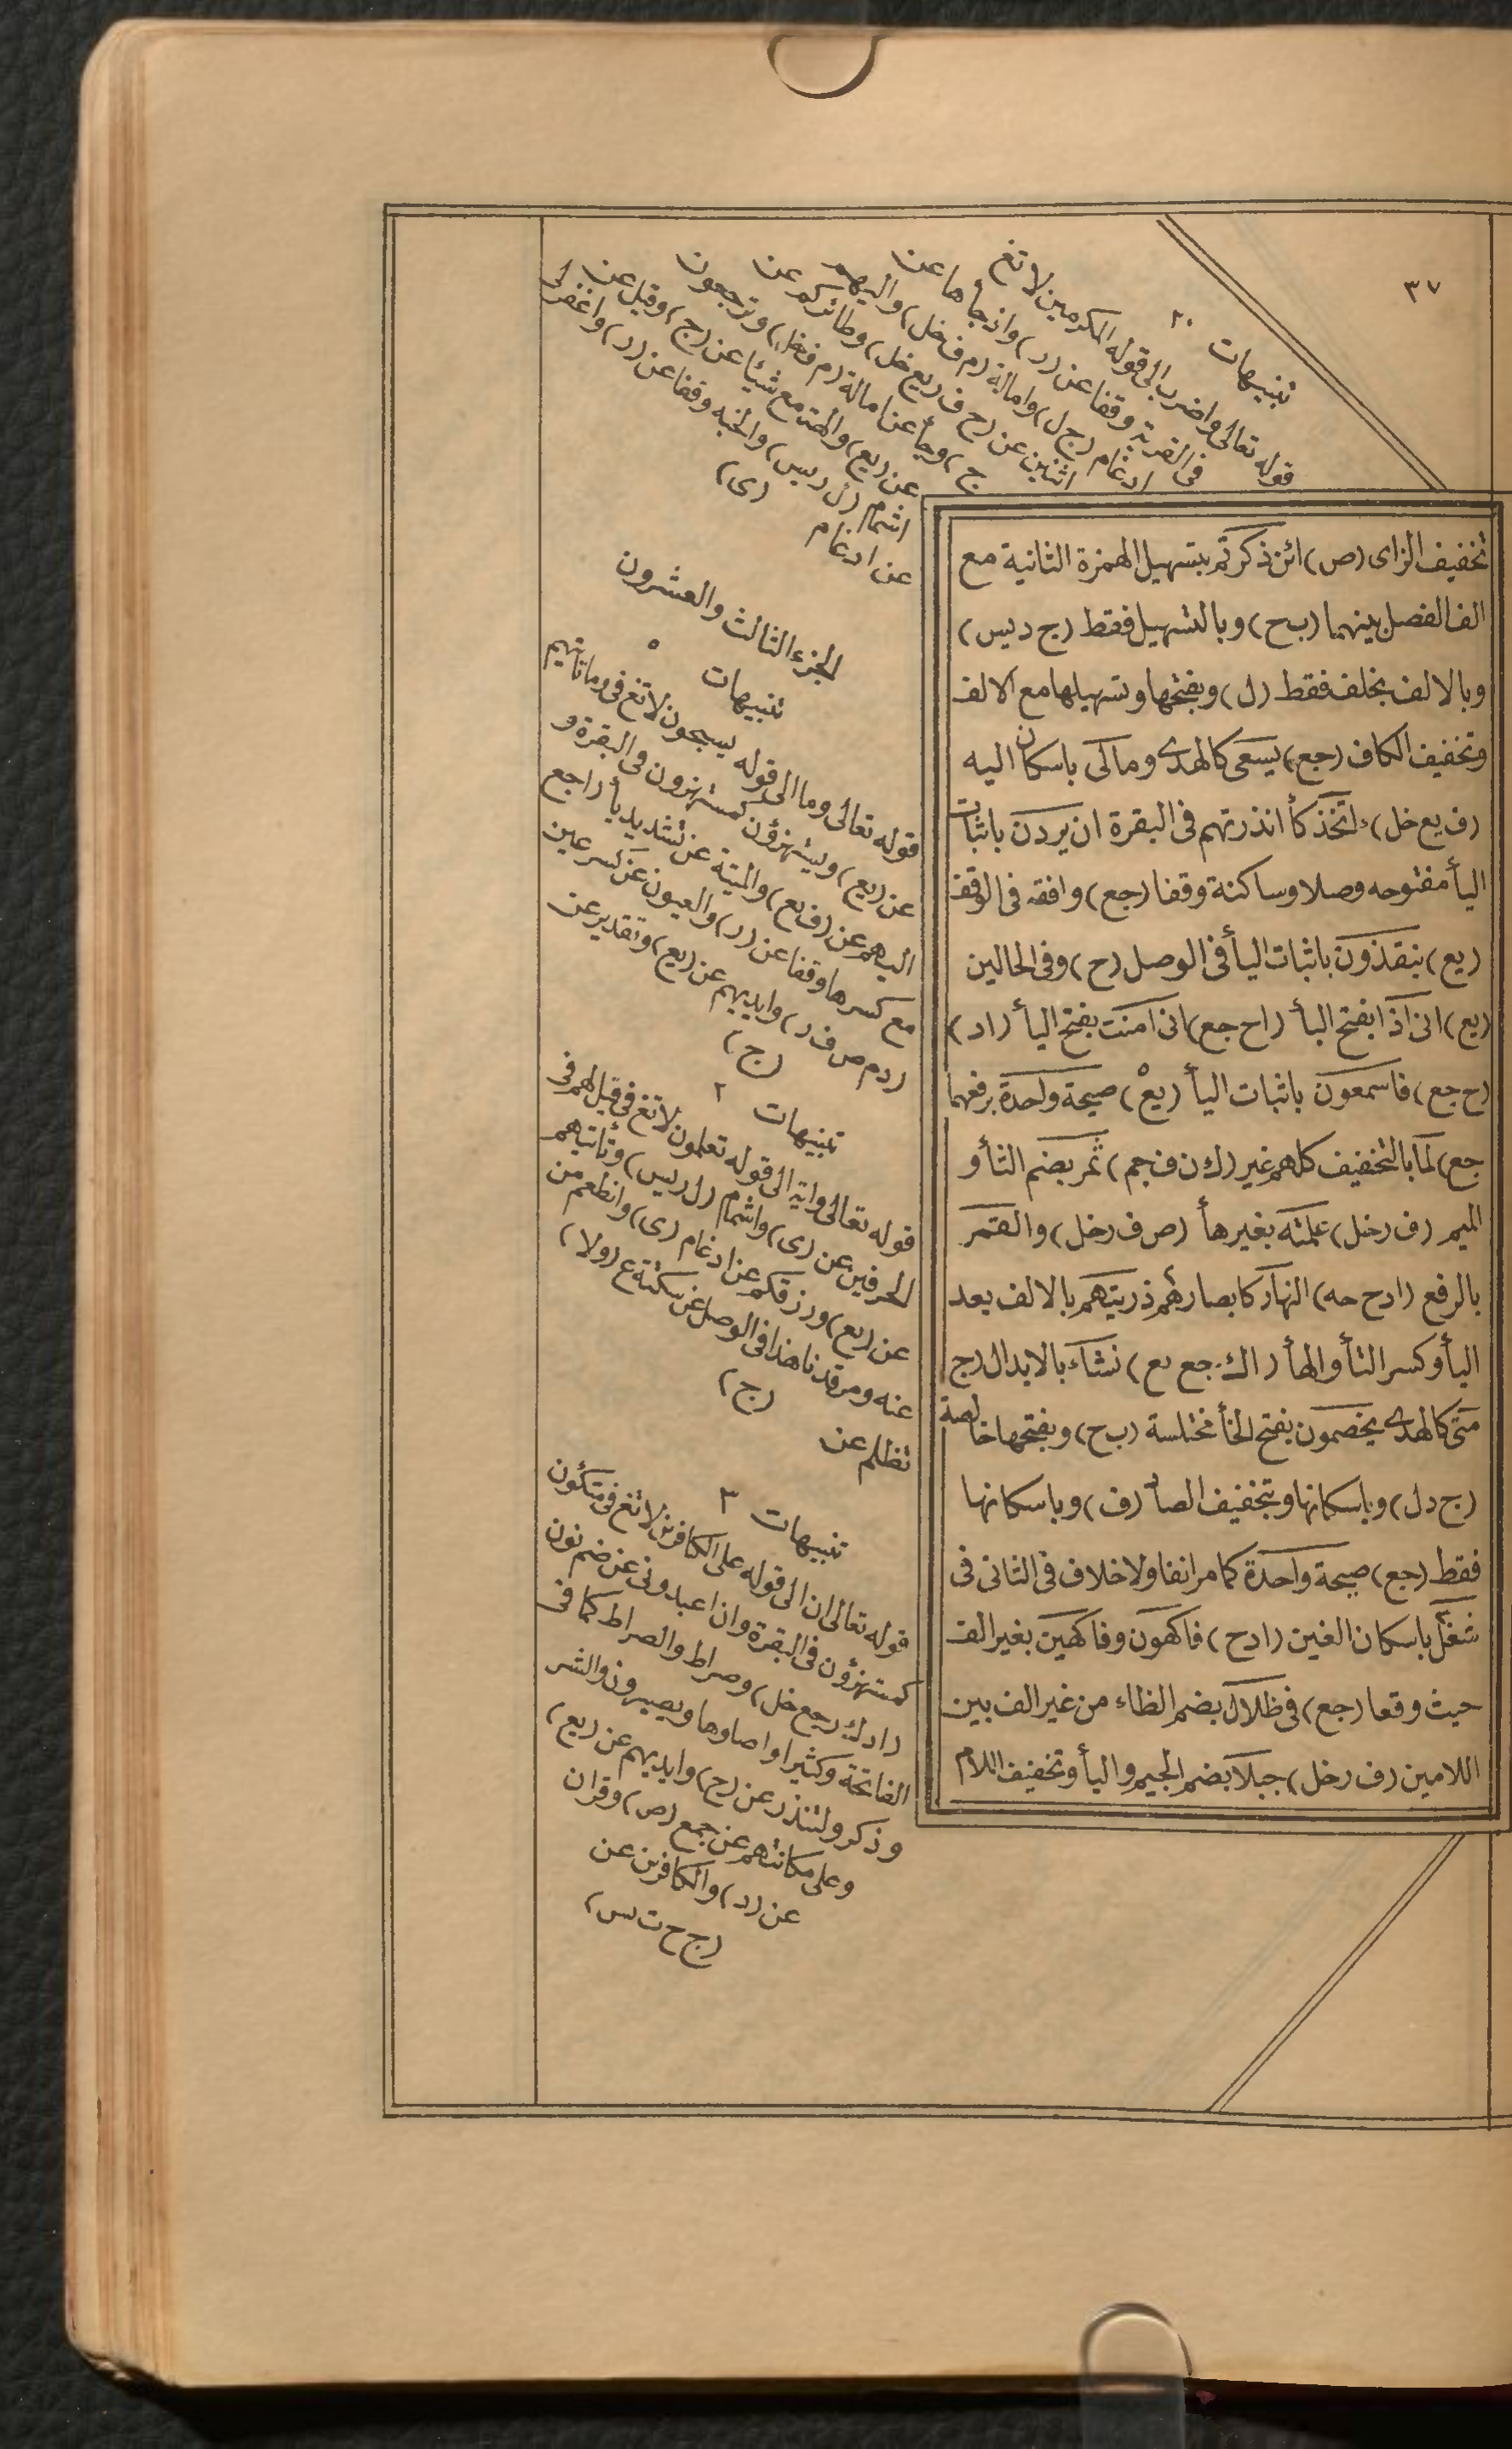 ٣٧
تخفيف الزاى (ص) ائن ذكرتم بتسهيل الهمزة الثانية مع
الف الفصل بينهما (ب ح) وبالتسهيل فقط (ج د يس)
وبالالف بخلف فقط (ل) وبفتحها وتسهيلها مع الالف
وتخفيف الكاف (جع) يسعى كالهدى ومالى باسكان اليه
(ف يع خل) ءاتخذ كأ انذرتهم فى البقرة ان يردن باثبات
اليأ مفتوحه وصلا وساكنة وقفا (جع) وافقه فى الوقف
(يع) ينقذون باثبات اليأ فى الوصل (ح) وفى الحالين
(يع) انى اذا بفتح اليأ (ا ح جع) انى امنت بفتح اليأ (ا د)
(ح جع) فاسمعون باثبات اليأ (يع) صيحة واحدة برفعهما
جع) لما بالتخفيف كلهم غير (ك ن ف جم) ثمر بضم الثأ و
الميم (ف ر خل) عملته بغير هأ (ص ف ر خل) والقمر
بالرفع (ا د ح حه) النهار كابصارهم ذريتهم بالالف بعد
اليأ وكسر التأ والهأ (ا ك جع يع) نشاء بالابدال (ج
متى كالهدى يخصمون بفتح الخأ مختلسة (ب ح) وبفتحها خالصة
(ج د ل) وباسكانها وبتخفيف الصاد (ف) وباسكانها
فقط (جع) صيحة واحدة كما مر انفا ولا خلاف فى الثانى فى
شغل باسكان الغين (ا د ح) فاكهون وفاكهين بغير الف
حيث وقعا (جع) فى ظلال بضم الظاء من غير الف بين
اللامين (ف ر خل) جبلا بضم الجيم واليأ وتخفيف اللام
تنبيهات ٢٠
قوله تعالى واضرب الى قوله المكرمين لا تغ
فى القرية وقفا عن (ر) واذ جأها عن
ادغام (ج ل) وامالة (م ف خل) واليهم
اثنين عن (ح ف ر يع خل) وطائركم عن
ج) وجأ عن امالة (م ف خل) وترجعون
عن (يع) والهة مع شيئا عن (ج) وقيل عن
اشمام (ل ر يس) والجنه وقفا عن (ر) واغفر لى
عن ادغام (ى)
الجزء الثالث والعشرون
تنبيهات ٥
قوله تعالى وما الى قوله يسبحون لا تغ فى وما تاتيهم
عن (يع) ويستهزؤن كمستهزون فى البقرة و
اليهم عن (ف يع) والميتة عن تشديد يأ (ا جع
مع كسرها وقفا عن (ر) والعيون عن كسر عين
(د م ص ف ر) وايديهم عن (يع) وتقدير عن
(ج)
تنبيهات ٢
قوله تعالى واية الى قوله تعلمون لا تغ فى قيل لهم فى
الحرفين عن (ى) واشمام (ل ر يس) وتأتيهم
عن (يع) ورزقكم عن ادغام (ى) وانطعم من
عنه ومرقدنا هذا فى الوصل عن سكتة ع (ولا)
تظلم عن (ج)
تنبيهات ٣
قوله تعالى ان الى قوله على الكافرين لا تغ فى متكئون
كمستهزؤن فى البقرة وان اعبدونى عن ضم نون
(ا د ك ر جع خل) وصراط والصراط كما فى
الفاتحة وكثيرا واصلوها ويصبرون والشر
وذكر ولتنذر عن (ج) وايديهم عن (يع)
وعلى مكانتهم عن جمع (ص) وقران
عن (د) والكافرين عن
(ج ح ت يس)